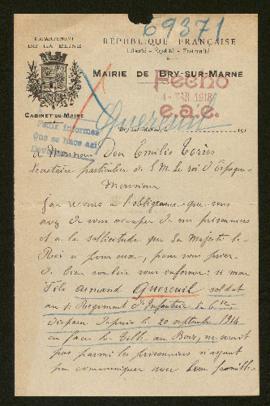 69371
DÉPARTEMENT
DE LA SEINE
RÉPUBLIQUE FRANÇAISE
Liberté - Égalité - Fraternité
MAIRIE DE BRY-SUR-MARNE
FECHO
1918
C.A.C.
CABINET DU MAIRE
Quereuil
Bry-sur-Marne
191
Que se hace así
à Don Emilio Torrès
Secrétaire particulier de S.M. le roi d'Espagne
Monsieur
l'obligeance que vous
avez de vous occuper de nos prisonniers
et à la sollicitude que Sa Majesté le
Roi a pour eux, pour vous prier
de bien vouloir vous informer si mon
fils Armand Quereuil soldat
au Régiment d'Infanterie
disparu depuis le 20 septembre 1914
en face le Bois, ne serait
pas parmi les prisonniers n'ayant
pu communiquer avec leur famille